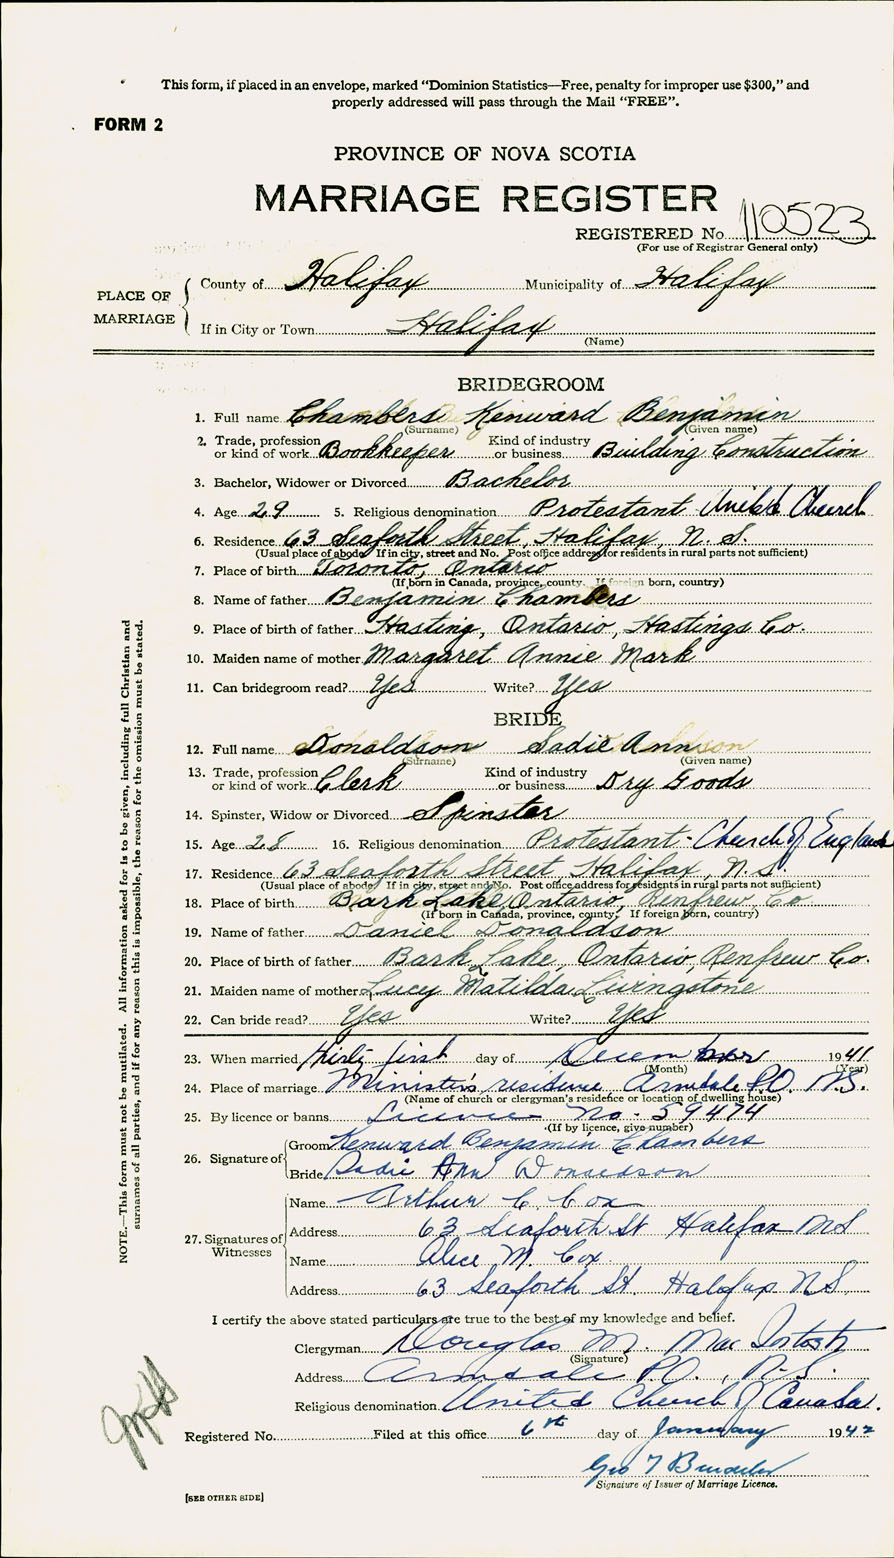 This form, if placed in an envelope, marked “Dominion Statistics—Free, penalty for improper use $300,” and
properly addressed will pass through the Mail “FREE”.
FORM 2
PROVINCE OF NOVA SCOTIA
MARRIAGE REGISTER
REGISTERED No. 110523
(For use of Registrar General only)
PLACE OF MARRIAGE
County of Halifax Municipality of Halifax
If in City or Town Halifax
(Name)
BRIDEGROOM
1. Full name Chambers Kenward Benjamin
(Surname) (Given name)
2. Trade, profession or kind of work Bookkeeper Kind of industry or business Building Construction
3. Bachelor, Widower or Divorced Bachelor
4. Age 29 5. Religious denomination Protestant United Church
6. Residence 63 Seaforth Street, Halifax, N. S.
(Usual place of abode If in city, street and No. Post office address for residents in rural parts not sufficient)
7. Place of birth Toronto, Ontario
(If born in Canada, province, county. If foreign born, country)
8. Name of father Benjamin Chambers
9. Place of birth of father Hasting, Ontario, Hastings Co.
10. Maiden name of mother Margaret Annie Mark
11. Can bridegroom read? Yes Write? Yes
BRIDE
12. Full name Donaldson Sadie Ann
(Surname) (Given name)
13. Trade, profession or kind of work Clerk Kind of industry or business Dry Goods
14. Spinster, Widow or Divorced Spinster
15. Age 28 16. Religious denomination Protestant - Church of England
17. Residence 63 Seaforth Street, Halifax, N.S.
(Usual place of abode If in city, street and No. Post office address for residents in rural parts not sufficient)
18. Place of birth Bark Lake, Ontario, Renfrew Co
(If born in Canada, province, county. If foreign born, country)
19. Name of father Daniel Donaldson
20. Place of birth of father Bark Lake, Ontario, Renfrew Co.
21. Maiden name of mother Lucy Matilda Livingstone
22. Can bride read? Yes Write? Yes
23. When married thirty first day of December 1941
(Month) (Year)
24. Place of marriage Minister's residence Armdale P.O. N.S.
(Name of church or clergyman's residence or location of dwelling house)
25. By licence or banns Licence No. 59474
(If by licence, give number)
26. Signature of
Groom Kenward Benjamin Chambers
Bride Sadie Ann Donaldson
27. Signatures of Witnesses
Name Arthur C. Cox
Address 63 Seaforth St Halifax NS
Name Alice M. Cox.
Address 63 Seaforth St. Halifax N.S.
I certify the above stated particulars are true to the best of my knowledge and belief.
Clergyman Douglas M. MacIntosh
(Signature)
Address Armdale P.O., N.S.
Religious denomination United Church of Canada.
Registered No. Filed at this office 6th day of January 1942
Geo T
Signature of Issuer of Marriage Licence.
[SEE OTHER SIDE]
NOTE.—This form must not be mutilated. All information asked for is to be given, including full Christian and
surnames of all parties, and if for any reason this is impossible, the reason for the omission must be stated.